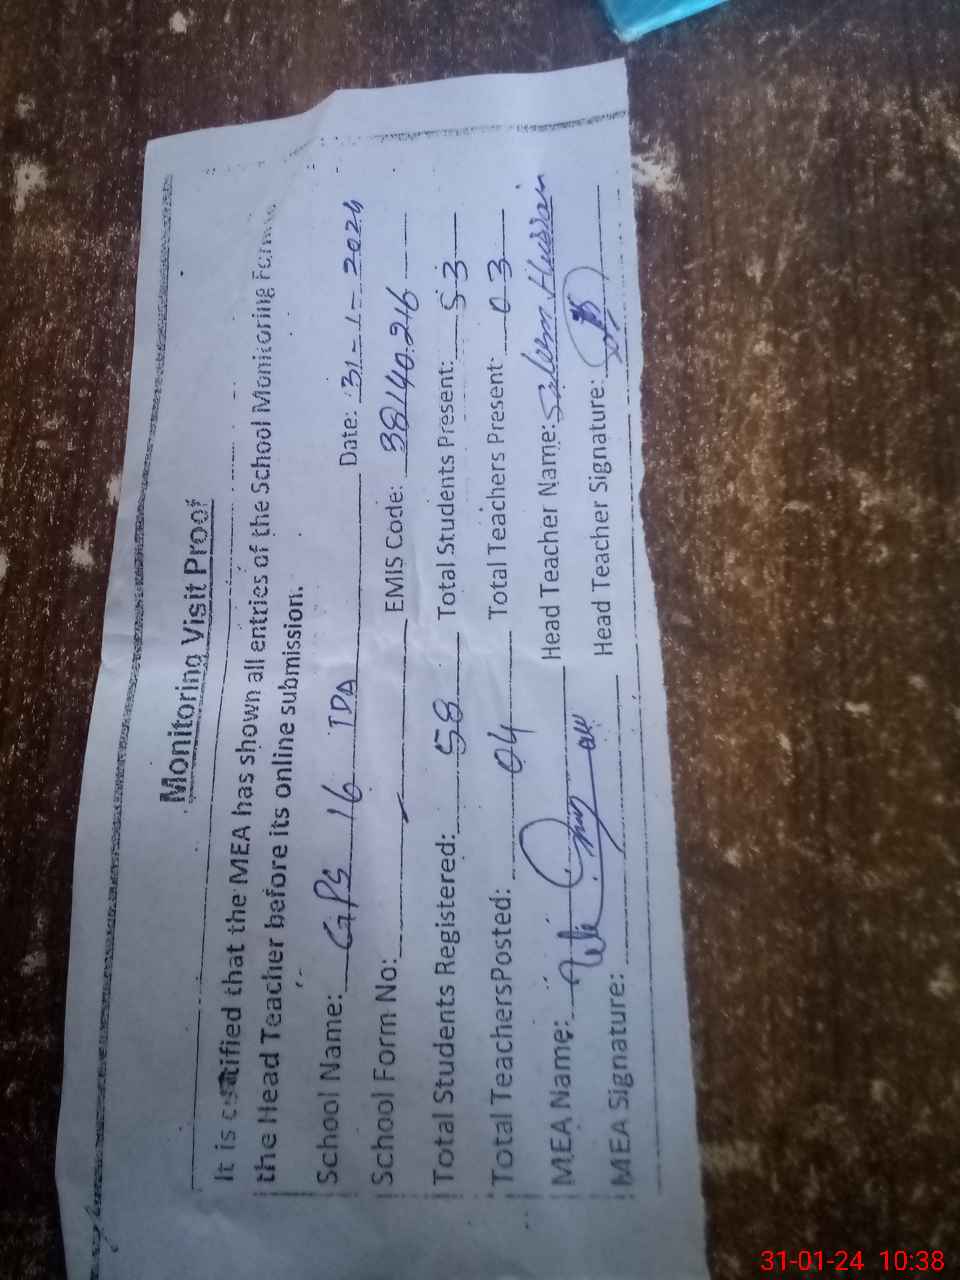 Monitoring Visit Proof
It is certified that the MEA has shown all entries of the School Monitoring Forms
the Head Teacher before its online submission.
School Name: GPS 16 TDA Date: 31-1-2024
School Form No: EMIS Code: 38140246
Total Students Registered: 58 Total Students Present: 53
Total Teachers Posted: 04 Total Teachers Present 03
MEA Name: Head Teacher Name: Saleem Hussain
MEA Signature: Head Teacher Signature:
31-01-24 10:38